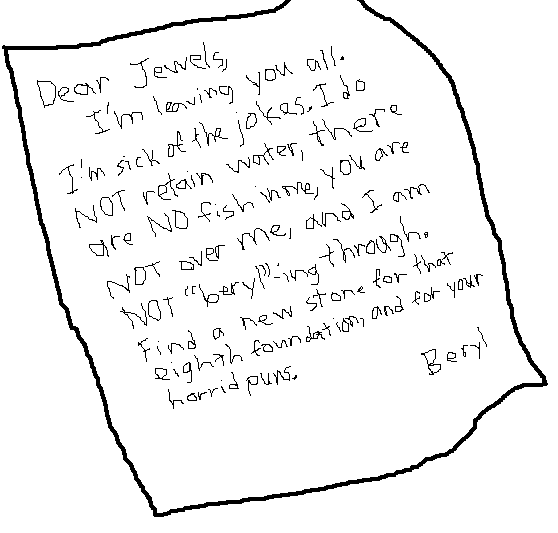 Dear Jewels,
I'm leaving you all.
I'm sick of the jokes. I do
NOT retain water, there
are NO fish in me, you are
NOT over me, and I am
NOT "beryl"-ing through.
Find a new stone for that
eighth foundation, and for your
horrid puns.
Beryl